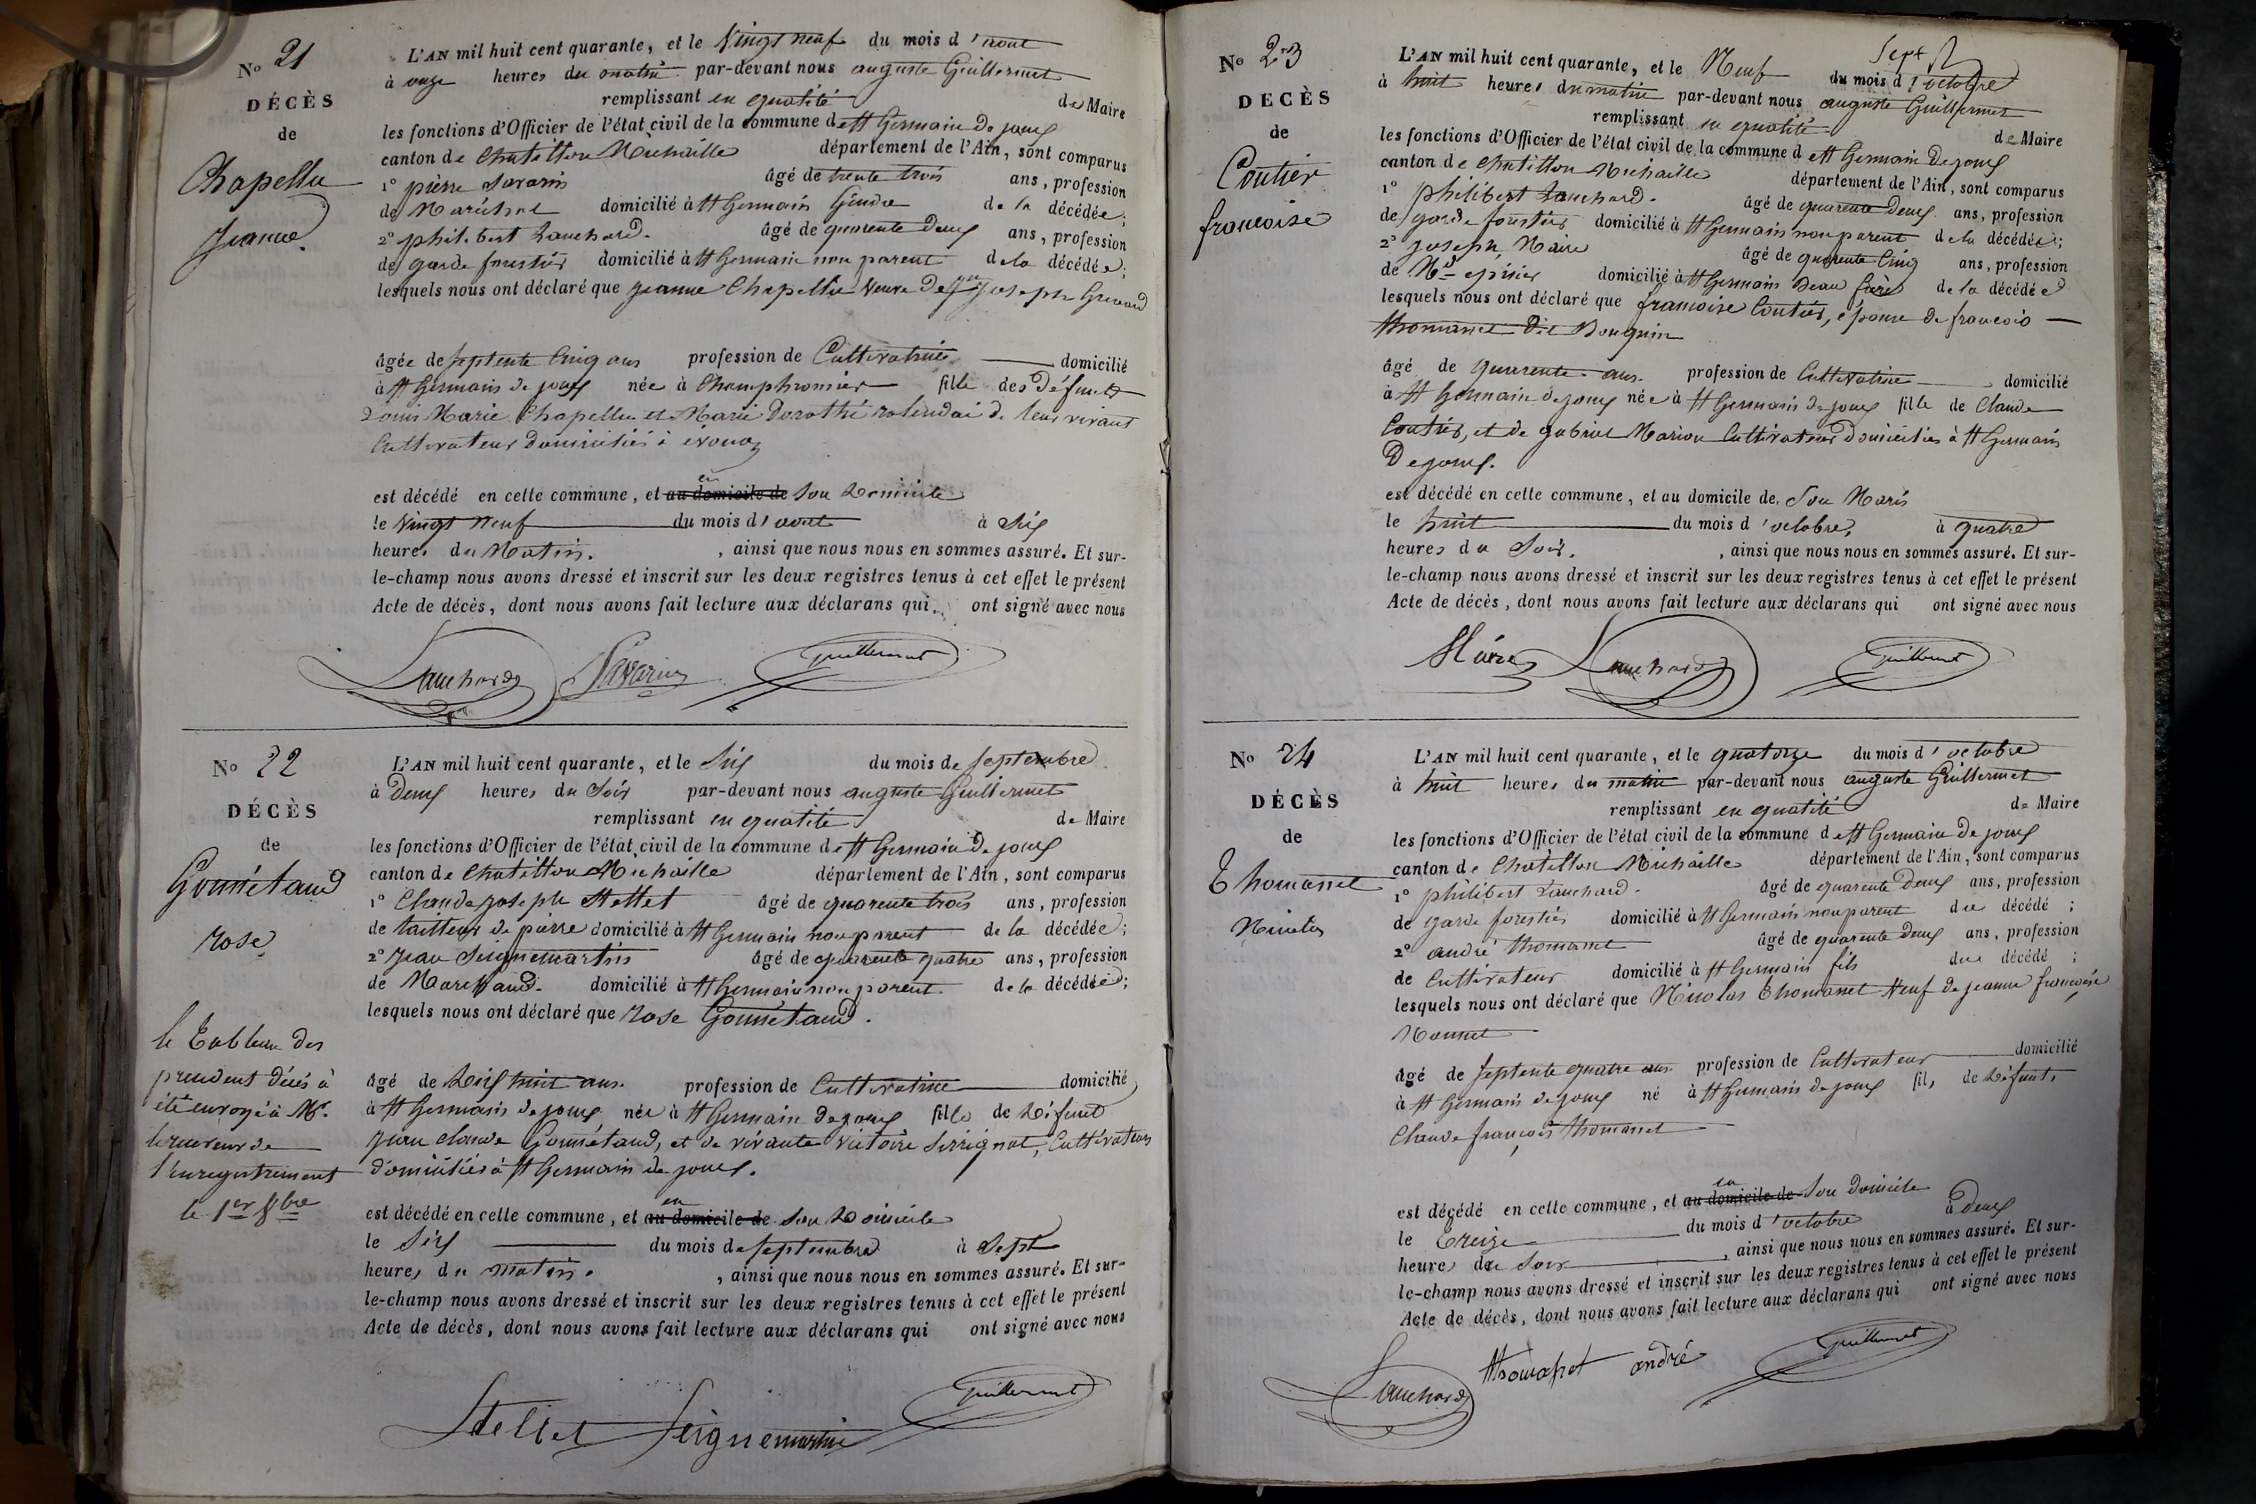 No 21
DÉCÈS
de
Chapellu
Jeanne
L'AN mil huit cent quarante, et le Vingt neuf du mois d'aout
à onze heures du matin par-devant nous auguste Guillermet
remplissant en qualité de Maire
les fonctions d'Officier de l'état civil de la commune de St Germain de joux
canton de Chatillon Michaille département de l'Ain, sont comparus
1° pierre Savarin âgé de trente trois ans, profession
de Maréchal domicilié à St Germain Gendre de la décédée;
2° philibert Lanchard. âgé de quarente deux ans, profession
de garde forestier domicilié à St Germain non parent de la décédée;
lesquels nous ont déclaré que jeanne Chapellu Veuve de joseph
âgée de septente Cinq ans profession de Cultivatrice domicilié
à St Germain de joux née à Champfromier fille des Défunts
Louis Marie Chapellu et Marie Dorothé de leur vivant
Cultivateurs domiciliés à
est décédé en cette commune, et au domicile de en Son Domicile
le Vingt neuf du mois d'aout à Six
heures du Matin. , ainsi que nous nous en sommes assuré. Et sur-
le-champ nous avons dressé et inscrit sur les deux registres tenus à cet effet le présent
Acte de décès, dont nous avons fait lecture aux déclarans qui ont signé avec nous
Lanchard Savarin Guillermet
No 22
DÉCÈS
de
Gonnétand
rose
le Tableau des
précédent décès à
été envoyé à Mr.
le receveur de
l'enregistrement
le 1er 8bre
L'AN mil huit cent quarante, et le Six du mois de septembre
à Deux heures du Soir par-devant nous auguste Guillermet
remplissant en qualité de Maire
les fonctions d'Officier de l'état civil de la commune de St Germain de joux
canton de Chatillon Michaille département de l'Ain, sont comparus
1° Claude joseph Stellet âgé de quarente trois ans, profession
de tailleur de pierre domicilié à St Germain non parent de la décédée;
2° jean Seignemartin âgé de quarente quatre ans, profession
de Marchand. domicilié à St Germain non parent de la décédée;
lesquels nous ont déclaré que rose Gonnétand.
âgé de Dix huit ans. profession de Cultivatrice domicilié
à St Germain de joux née à St Germain de joux fille de Défunt
jean claude Gonnétand, et de vivante Victoire Serrignat, Cultivateurs
domiciliés à St Germain de joux.
est décédé en cette commune, et au domicile de en Son Domicile
le Six du mois de septembre à Sept
heures du matin. , ainsi que nous nous en sommes assuré. Et sur-
le-champ nous avons dressé et inscrit sur les deux registres tenus à cet effet le présent
Acte de décès, dont nous avons fait lecture aux déclarans qui ont signé avec nous
Stellet Seignemartin Guillermet
No 23
DECÈS
de
Coutier
francoise
L'AN mil huit cent quarante, et le Neuf du mois d'octobre
à huit heures du matin par-devant nous auguste Guillermet
remplissant en qualité de Maire
les fonctions d'Officier de l'état civil de la commune de St Germain de joux
canton de Chatillon Michaille département de l'Ain, sont comparus
1° philibert Lanchard. âgé de quarente Deux ans, profession
de garde forestier domicilié à St Germain non parent de la décédée;
2° joseph Maire âgé de quarente Cinq ans, profession
de Md épicier domicilié à St Germain Beau frère de la décédée
lesquels nous ont déclaré que francoise Coutier, épouse de francois
thomasset Dit Bouquin
âgé de quarente ans. profession de Cultivatrice domicilié
à St Germain de joux née à St Germain de joux fille de Claude
Coutier, et de gabriel Marion Cultivateurs domiciliés à St Germain
De joux.
est décédé en cette commune, et au domicile de Son Maris
le huit du mois d'octobre, à quatre
heures du Soir. , ainsi que nous nous en sommes assuré. Et sur-
le-champ nous avons dressé et inscrit sur les deux registres tenus à cet effet le présent
Acte de décès, dont nous avons fait lecture aux déclarans qui ont signé avec nous
Maire Lanchard Guillermet
No 24
DÉCÈS
de
Thomasset
Nicolas
L'AN mil huit cent quarante, et le quatorze du mois d'octobre
à huit heures du matin par-devant nous auguste Guillermet
remplissant en qualité de Maire
les fonctions d'Officier de l'état civil de la commune de St Germain de joux
canton de Chatillon Michaille département de l'Ain, sont comparus
1° philibert Lanchard. âgé de quarente Deux ans, profession
de garde forestier domicilié à St Germain non parent du décédé;
2° andré thomasset âgé de quarente deux ans, profession
de Cultivateur domicilié à St Germain fils du décédé;
lesquels nous ont déclaré que Nicolas Thomasset Veuf de jeanne françoise
Monnet
âgé de septente quatre ans profession de Cultivateur domicilié
à St Germain de joux né à St Germain de joux fils de Défunt
Claude françois thomasset
est décédé en cette commune, et au domicile de en Son domicile
le Treize du mois d'octobre à deux
heures du Soir , ainsi que nous nous en sommes assuré. Et sur-
le-champ nous avons dressé et inscrit sur les deux registres tenus à cet effet le présent
Acte de décès, dont nous avons fait lecture aux déclarans qui ont signé avec nous
Lanchard thomasset andré Guillermet